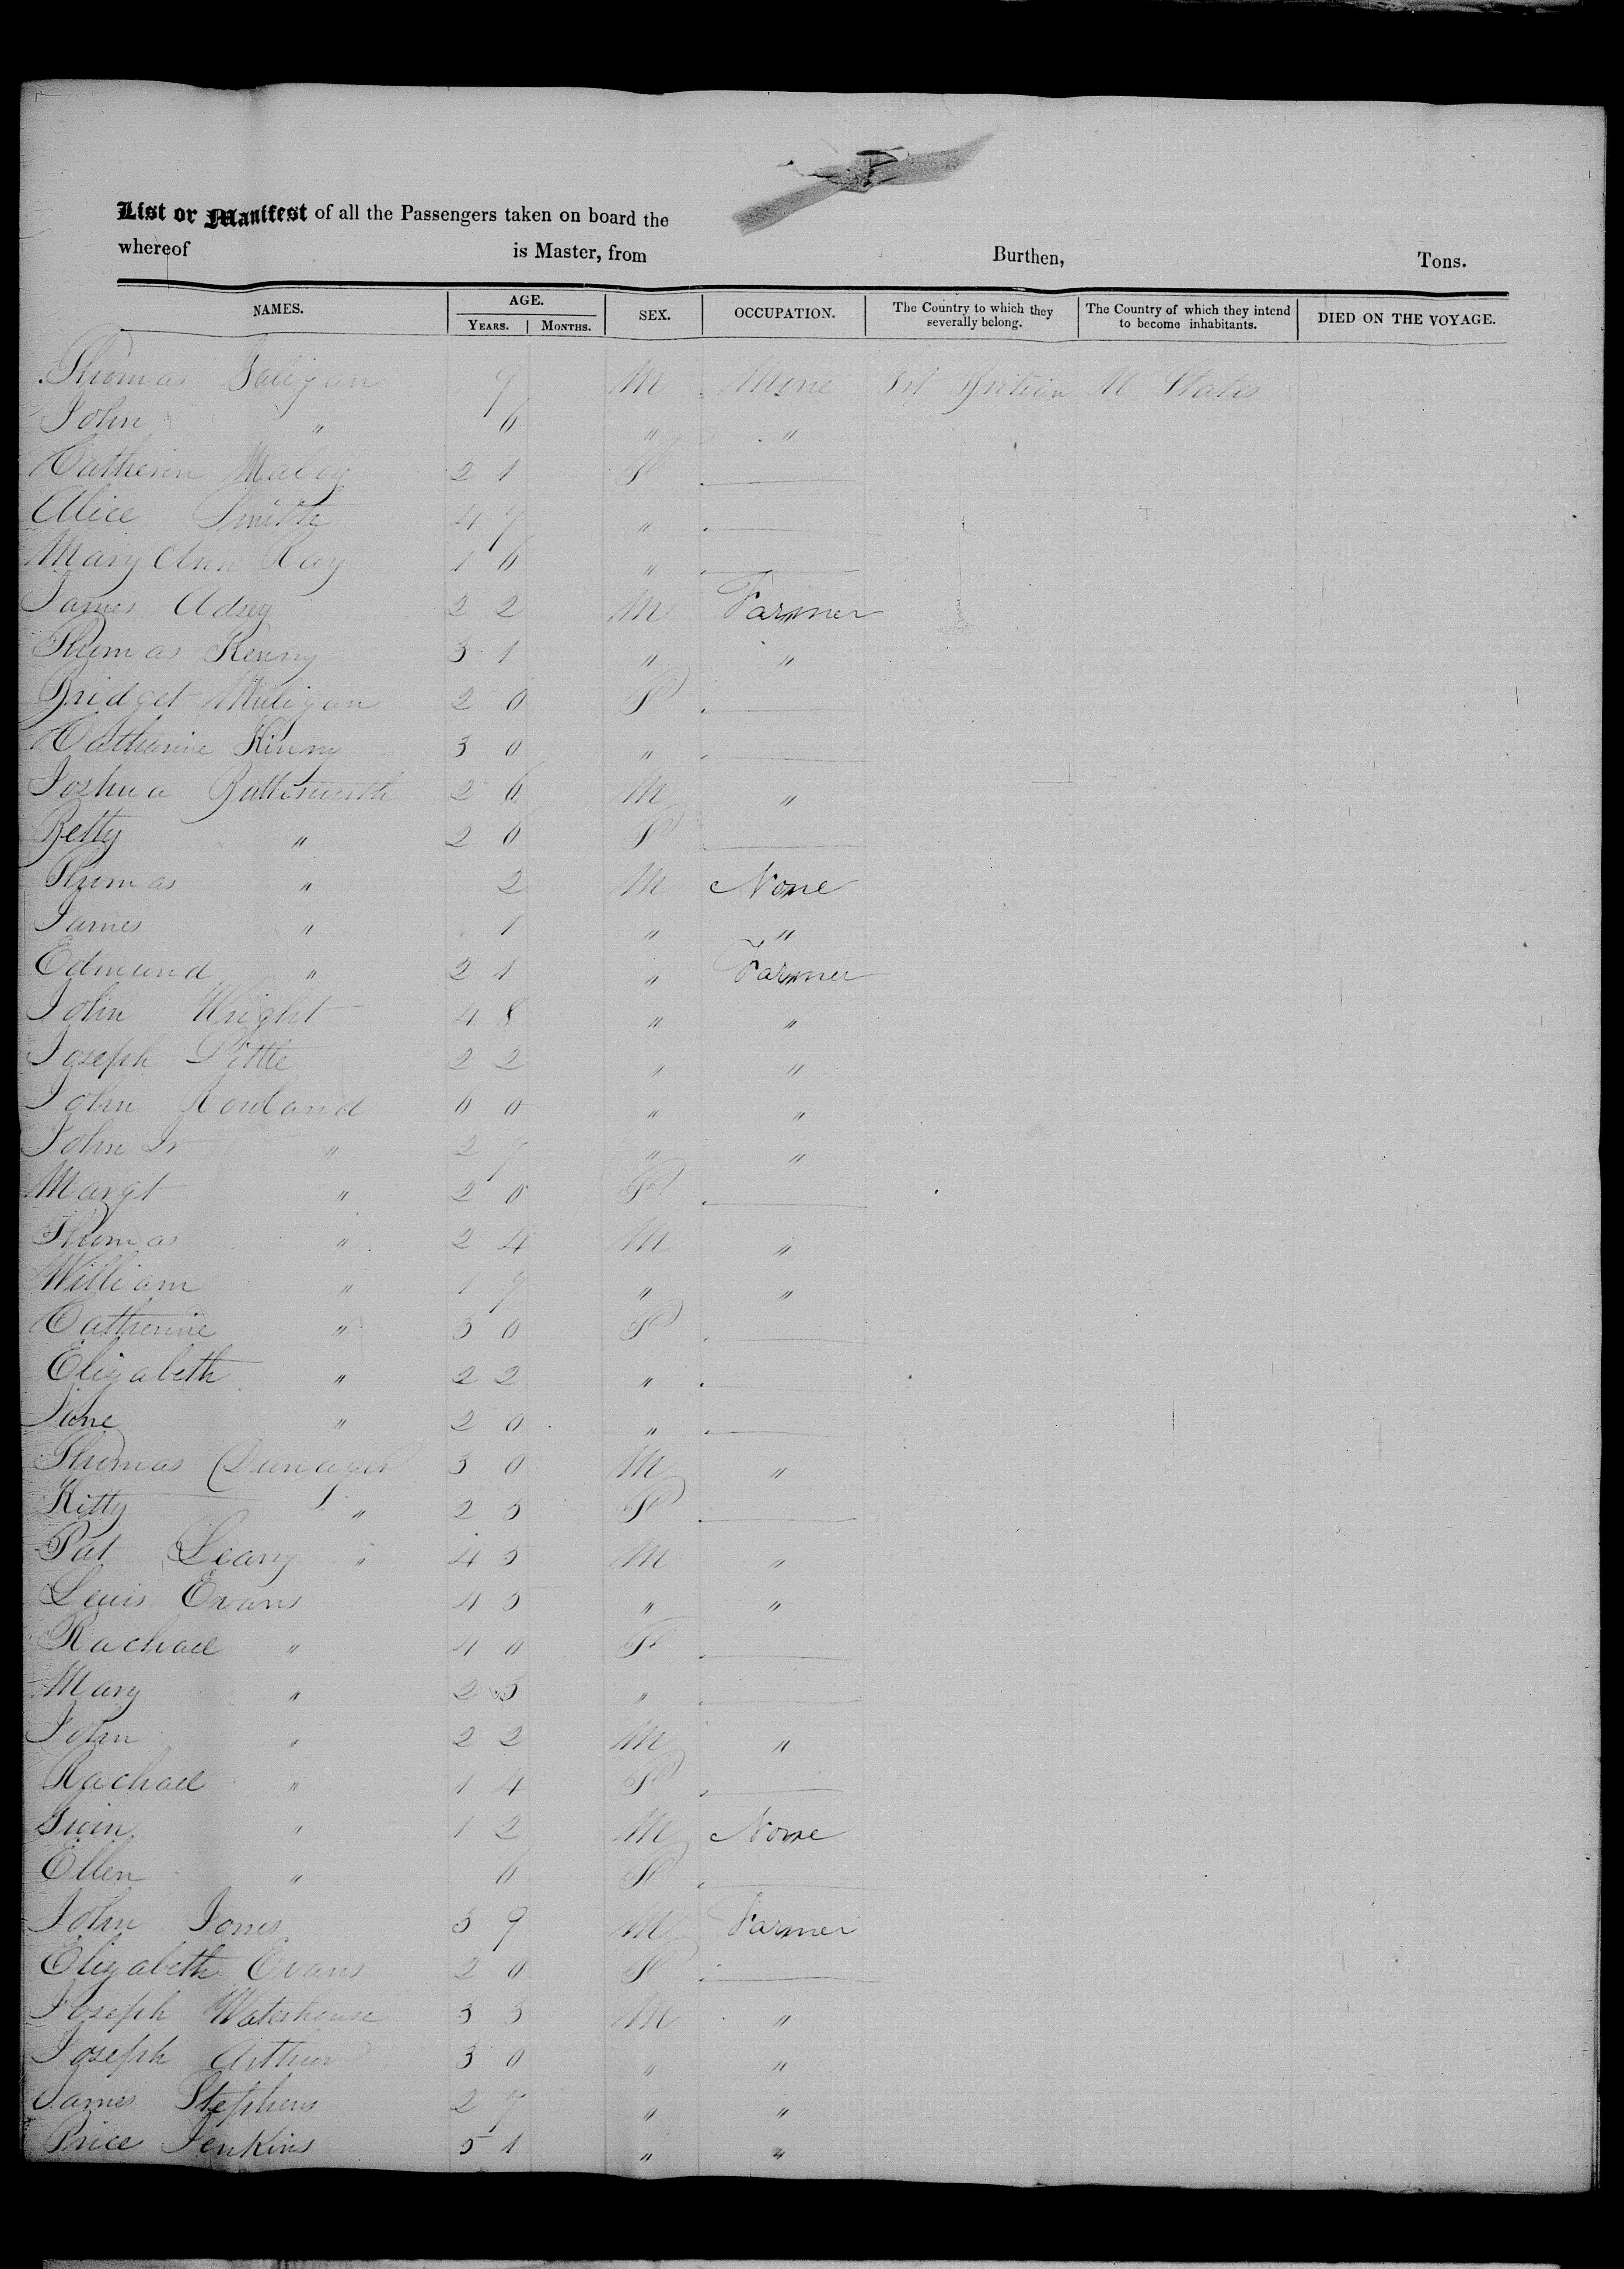 List or Manifest of all the Passengers taken on board the
whereof is Master, from Burthen, Tons.
NAMES. AGE. YEARS. MONTHS. SEX. OCCUPATION. The Country to which they severally belong. The Country of which they intend to become inhabitants. DIED ON THE VOYAGE.
Thomas Galigan 9 M None Grt Britian U States
John " 6 " "
Catherin 21 F
Alice Smith 47 "
Mary Ann Ray 16 "
James Adsey 22 M Farmer
Thomas Kenny 31 " "
Bridget Muligan 20 F
Catharine Kinny 30 "
Joshua Butterworth 26 M "
Betty " 20 F
Thomas " 2 M None
James " 1 " "
Edmund " 21 " Farmer
John Wright 48 " "
Joseph Little 22 " "
John Rowland 60 " "
John Jr " 27 " "
Margt " 20 F
Thomas " 24 M "
William " 17 " "
Catherine " 30 F
Elizabeth " 22 "
Jane " 20 "
Thomas 30 M "
Kitty " 25 F
Pat Leary " 45 M "
Lewis Evans 45 " "
Rachael " 40 F
Mary " 25 "
John " 22 M "
Rachael " 14 F
Gwin " 12 M None
Ellen " 6 F
John Jones 39 M Farmer
Elizabeth Evans 20 F
Joseph Waterhouse 33 M "
Joseph Arthur 30 " "
James Stephens 27 " "
Price Jenkins 51 " "